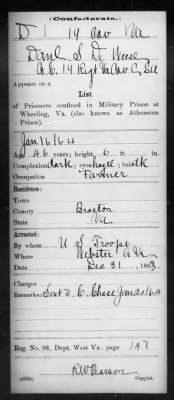 (Confederate.)
D 1 19 Cav Va
Danl S De Weese
Co. C, 19 Regt Va Cav C, S.A
Appears on a
List
of Prisoners confined in Military Prison at
Wheeling, Va. (also known as Atheneum
Prison).
Jan 16 1864
Age 46 years; height, 6 ft. in.
Complexion dark; eyes hazel; hair dk
Occupation Farmer
Residence:
Town
County Braxton
Va
Arrested:
By whom U S Troops
Where Webster Co Va
Date Dec 31, 1863.
Charges
Remarks: Sent to C. Chase Jan 20/64
Reg. No. 96, Dept. West Va., page 147
R W Pearson
Copyist.